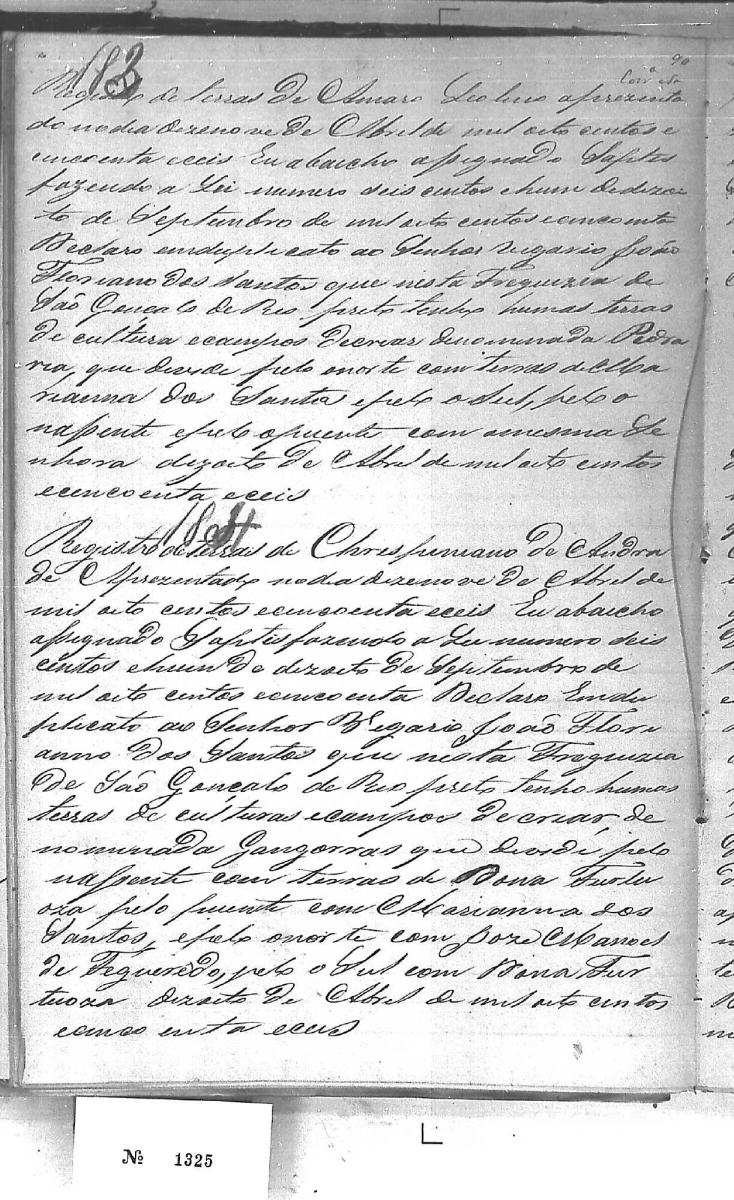 183
90
Registro de terras de Amaro Leolino aprezenta
do nodia dezenove de Abril de mil oito centos e
cincoenta eceis Eu abaicho assignado Saptes
fazendo a Lei numero seis centos ehum dedezoi
to de Septembro de mil oito centos ecincoenta
Declaro emduplicato ao Senhor Vegario João
Floriano dos Santos que nesta Freguezia de
São Gonçalo do Rio preto tenho humas terras
de cultura ecampos decriar denominada Pedra
ria, que devide pelo onorte com terras de Ma
rianna dos Santos epelo o Sul, pelo o
nassente epelo opuente com amesma Se
nhora dezoito de Abril de mil oito centos
ecincoenta eceis
184
Registro de terras de Chrespiniano de Andra
de Aprezentado nodia dezenove de Abril de
mil oito centos ecincoenta eceis Eu abaicho
assignado Saptisfazendo a Lei numero seis
centos ehum de dezoito de Septembro de
mil oito centos ecincoenta Declaro Emdu
plicato ao Senhor Vegario João Flori
anno dos Santos que nesta Freguezia
de São Gonçalo do Rio preto tenho humas
terras de culturas ecampos de criar de
nominada Gangorras que devide pelo
nassente com terras de Dona Furtu
oza pelo puente com Marianna dos
Santos, epelo onorte com Joze Manoel
de Figueredo, pelo o Sul com Dona Fur
tuoza dezoito de Abril de mil oito centos
ecinco enta eceis
№ 1325